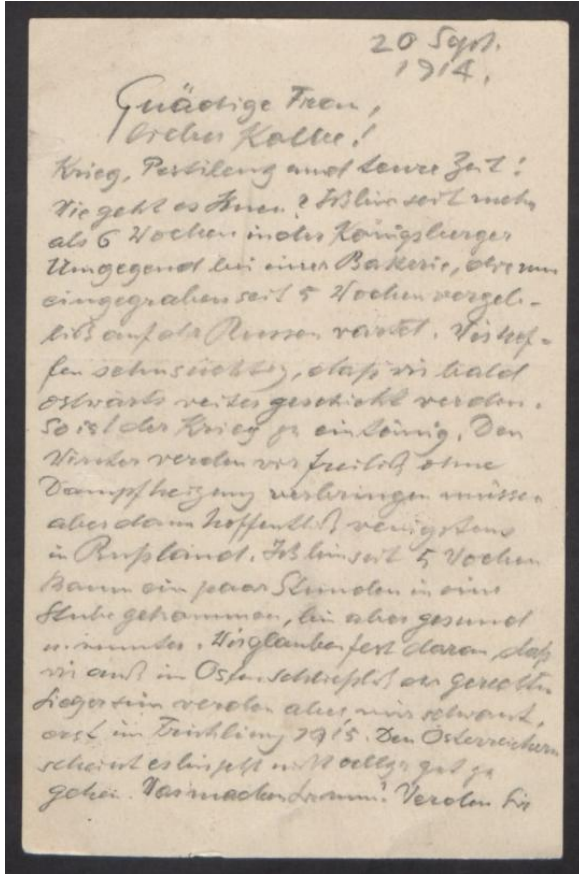 20 Sept.
1914.
Gnädige Frau,
lieber Kolbe!
Krieg, Pestilenz und teure Zeit!
Wie geht es Ihnen? Ich bin seit mehr
als 6 Wochen in der Königsberger
Umgegend bei einer Batterie, die nun
eingegraben seit 5 Wochen vergeb-
lich auf die Russen wartet. Wir hof-
fen sehnsüchtig, daß wir bald
ostwärts weiter geschickt werden.
So ist der Krieg zu eintönig. Den
Winter werden wir freilich ohne
Dampfheizung verbringen müssen
aber dann hoffentlich wenigstens
in Rußland. Ich bin seit 5 Wochen
kaum ein paar Stunden in eine
Stube gekommen, bin aber gesund
u. munter. Wir glauben fest daran, daß
wir auch im Osten schließlich die gerechten
Sieger sein werden aber, mir schwant,
erst im Frühling 1915. Den Österreichern
scheint es bis jetzt nicht allzu gut zu
gehen. Was machen Sie nun? Werden Sie